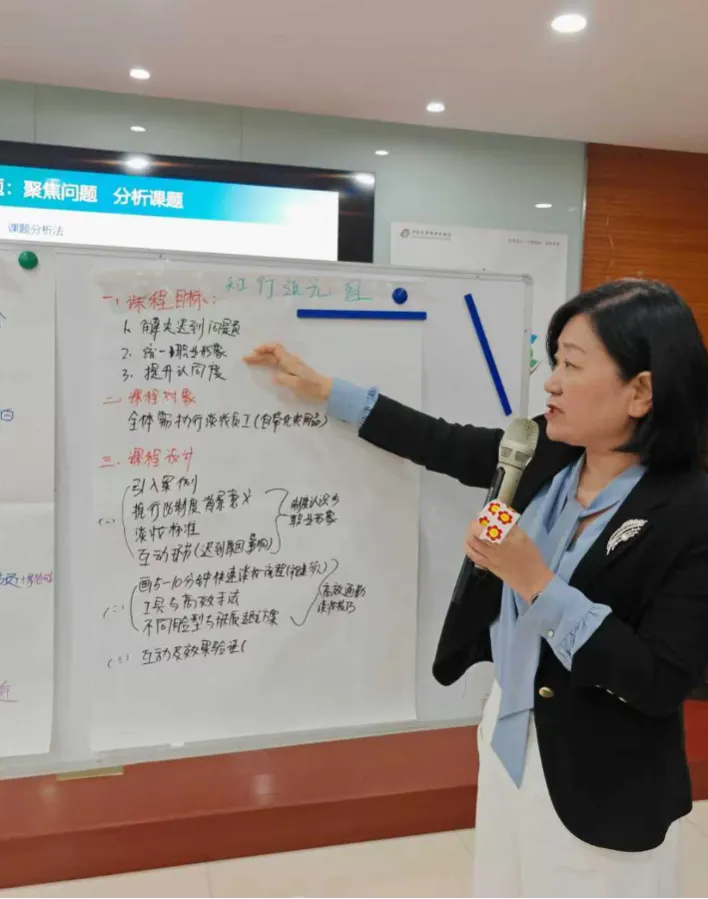 聚焦问题 分析课题
课题分析法
一、课程目标：
1. 解决迟到问题
2. 统一职业形象
3. 提升认同度
二、课程对象
全体 执行淡妆员工(自带化妆用品)
三、课程设计
(一)
引入案例
执行 制度背景意义
淡妆标准
互动环节(迟到原因影响)
制度认识与
职业形象
(二)
画5-10分钟快速淡妆
工具与高效手法
不同脸型与 方案
高效通勤
技巧
(三) 互动及效果验证(